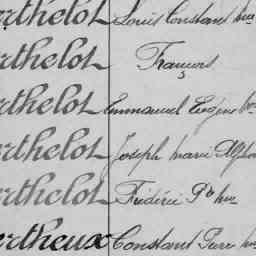 rthelot Louis Constant
rthelot François
rthelot Emmanuel Eugène
rthelot Joseph Marie
rthelot Frédéric
ertheux Constant Pierre